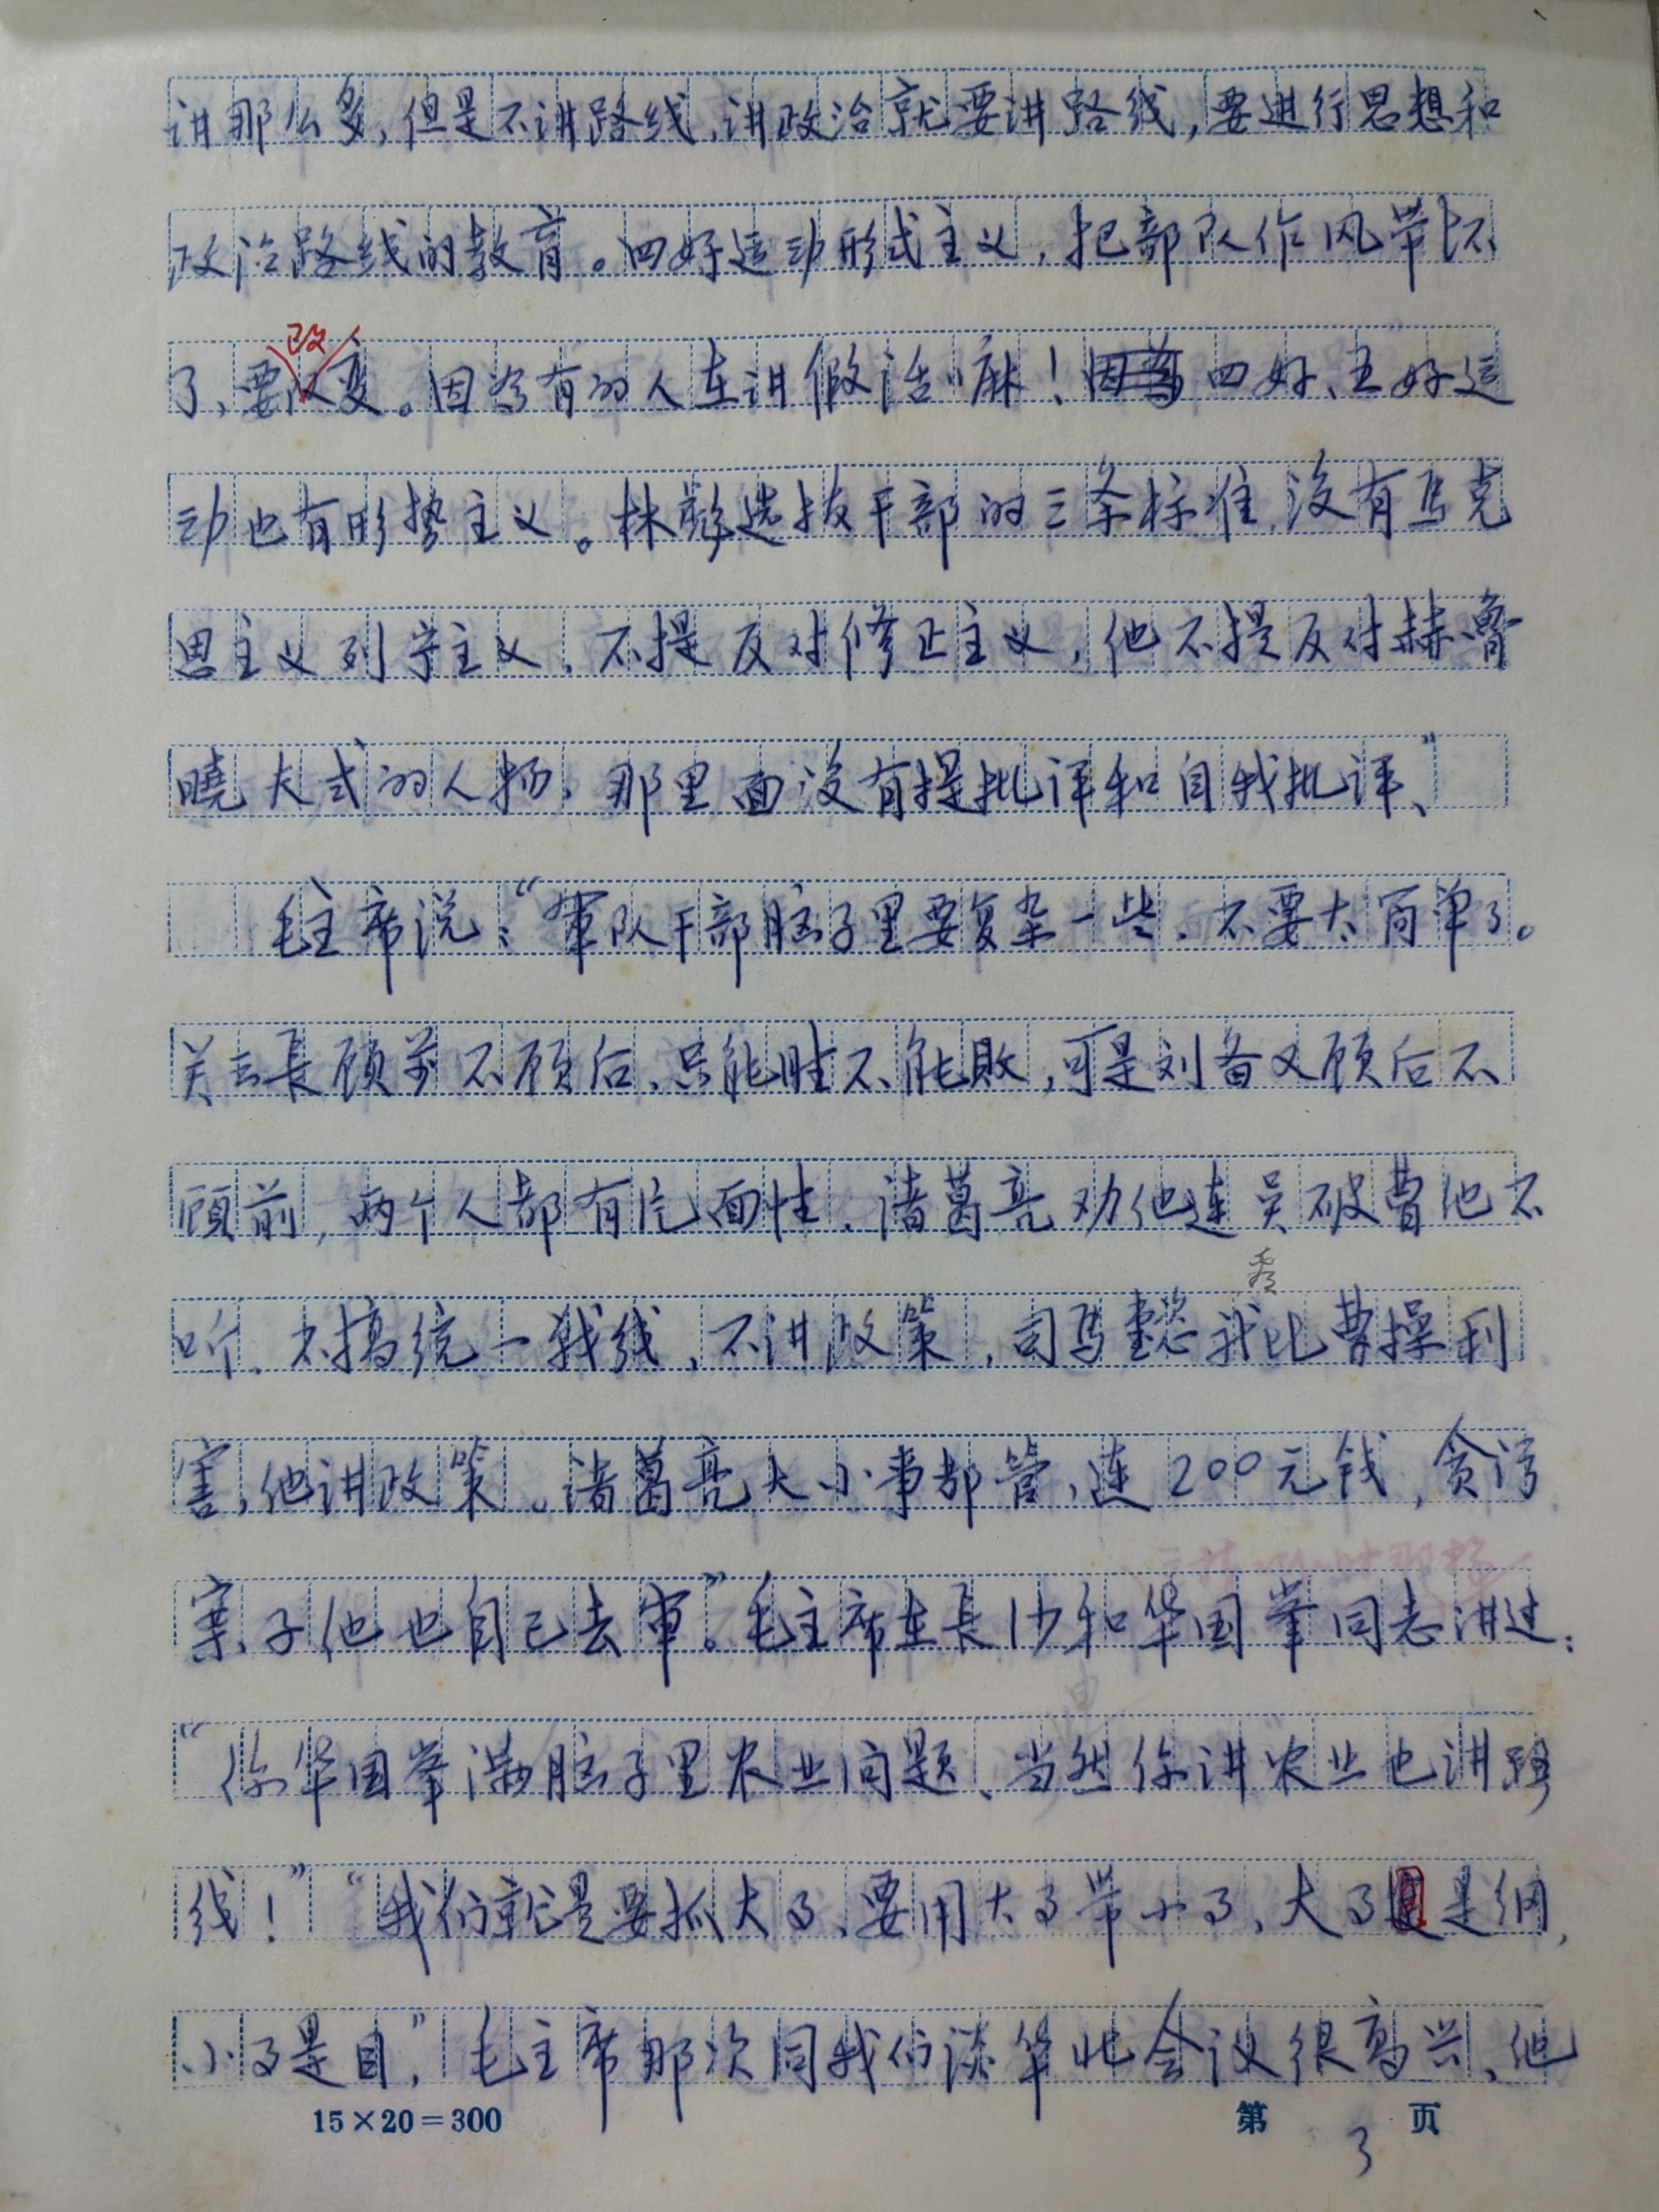 讲那么多，但是不讲路线，讲政治就要讲路线，要进行思想和
政治路线的教育。四好运动形式主义，把部队作风带坏
改
了，要改变。因为有的人在讲假话嘛！因为四好、五好运
动也有形势主义。林彪选拔干部的三条标准，没有马克
思主义列宁主义，不提反对修正主义，他不提反对赫鲁
曉夫式的人物，那里面没有提批评和自我批评、”
毛主席说：“軍队干部脑子里要复杂一些，不要太简单了。
关云長顾前不顾后，只能胜不能敗，可是刘备又顾后不
顾前，两个人都有片面性，诸葛亮劝他连吴破曹他不
听，不搞统一战线，不讲政策，司马懿我比曹操利
害，他讲政策。诸葛亮大小事都管，连200元钱，贪污
案子他也自己去审”。毛主席在長沙和华国峯同志讲过：
“你华国峯满脑子里农业问题、当然你讲农业也讲路
线！”“我们就是要抓大了、要用大了带小了，大了是纲，
小了是目，”毛主席那次同我们谈华北会议很高兴、他
15×20=300
第 3 页